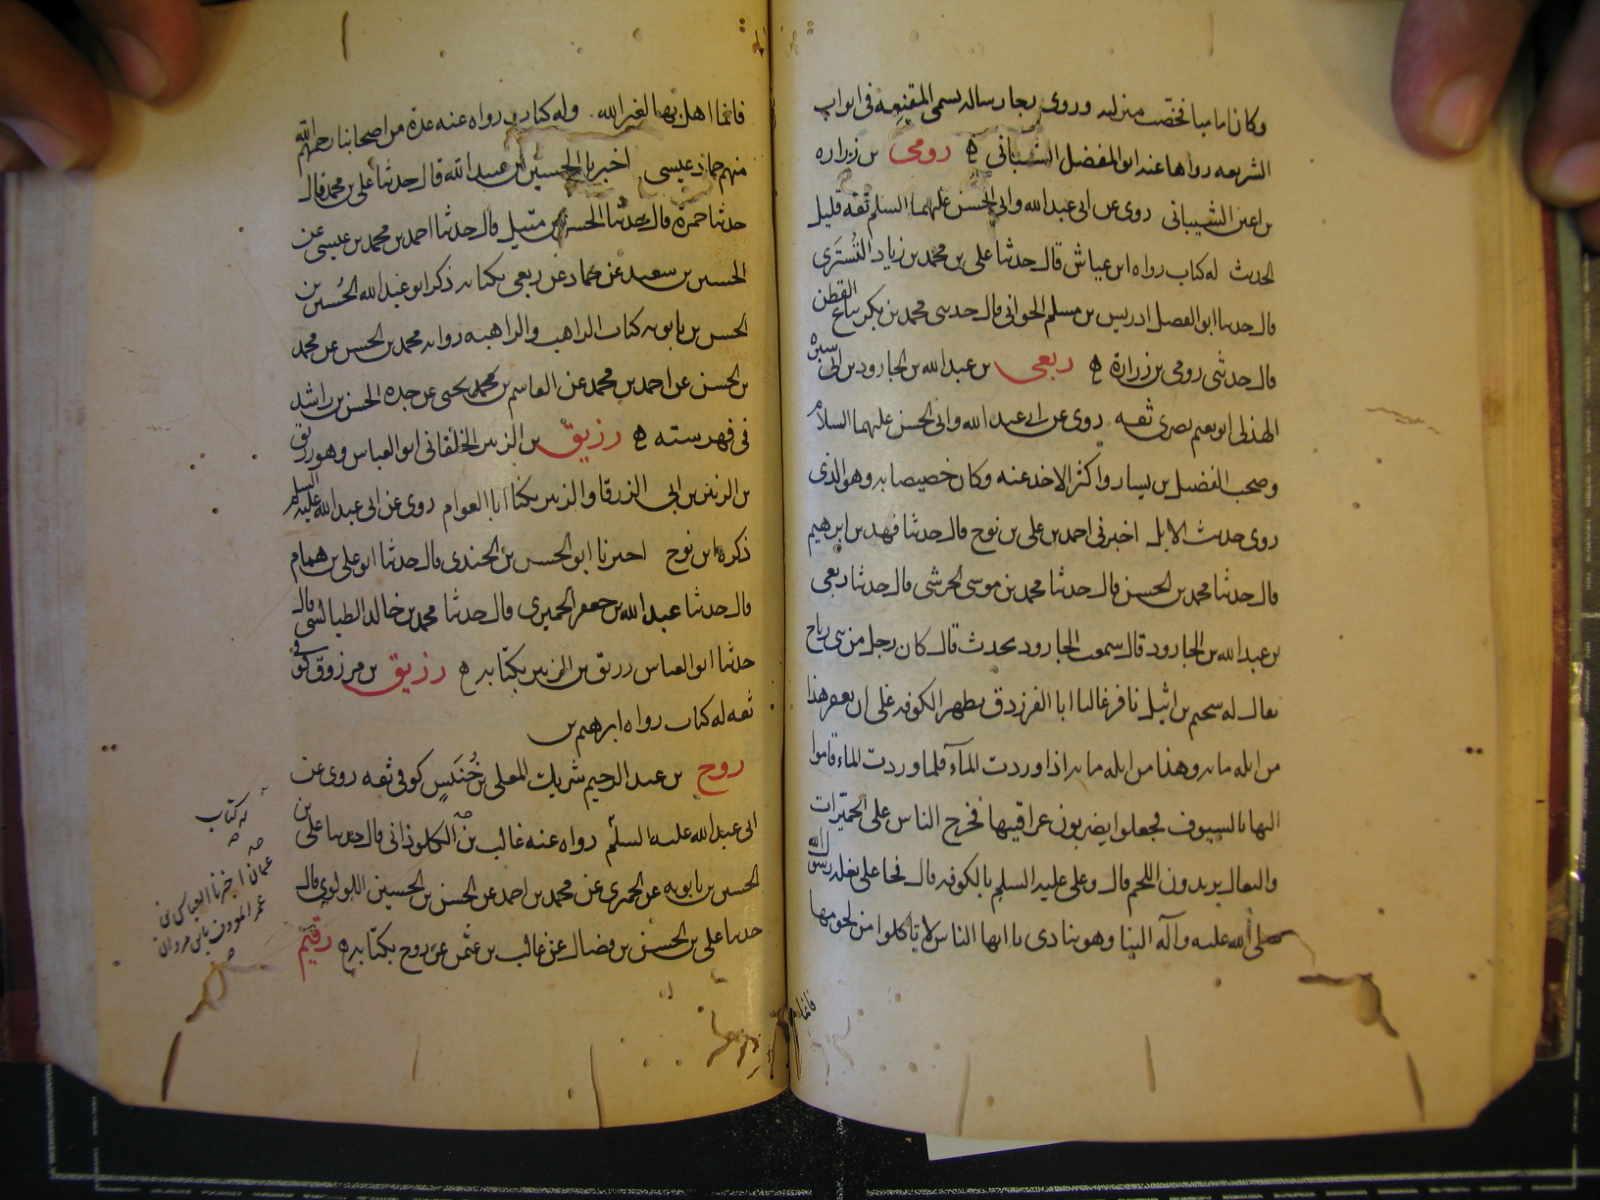 وكان اماميا تخصّت منزلته وروى بحار رسالة تسمى المقنعه فى ابواب
الشريعه رواها عنه ابو المفضل الشيبانى ھ رومى بن زراره
بن اعين الشيبانى روى عن ابى عبد الله وابى الحسن عليهما السلم ثقه قليل
الحديث له كتاب رواه ابن عياش قال حدثنا على بن محمد بن زياد التُسترَى
قال حدثنا ابو الفضل ادريس بن مسلم الحوانى قال حدثنى محمد بن بكر بياع القطن
قال حدثنى رومى بن زرارة ھ ربعى بن عبد الله بن الجارود بن ابى سبره
الهذلى ابو نعيم بصرى ثقه روى عن ابى عبد الله وابى الحسن عليهما السلام
وصحب الفضيل بن يسار واكثر الاخد عنه وكان خصيصا به وهو الذى
روى حديث الابل اخبرنى احمد بن على بن نوح قال حدثنا فهد بن ابرهيم
قال حدثنا محمد بن الحسن قال حدثنا محمد بن موسى الحرشى قال حدثنا ربعى
بن عبد الله بن الجارود قال سمعت الجارود يحدث قال كان رجل من بنى رياح
يقال له سحيم بن اثيل نافر غالبا ابا الفرزدق بظهر الكوفه على ان يعقر هذا
من ابله مايه وهذا من ابله مايه اذا وردت المآء فلما وردت الماء قاموا
اليها بالسيوف فجعلوا يضربون عراقيبها فخرج الناس على الحميّرات
والبغال يريدون اللحم قال وعلى عليه السلم بالكوفه قال فجا على بغلة رسول الله
صلى الله عليه وآله الينا وهو ينادى يا ايها الناس لا تاكلوا من لحومها
فانما
فانما اهل بها لغير الله وله كتاب رواه عنه عدة من اصحابنا رحمهم الله
منهم حماد عيسى اخبرنا الحسين بن عبيد الله قال حدثنا على بن محمد قال
حدثنا حمزة قال حدثنا الحسن بن متيل قال حدثنا احمد بن محمد بن عيسى عن
الحسين بن سعيد عن حماد عن ربعى بكتابه ذكر ابو عبد الله الحُسين بن
الحسن بن بابويه كتاب الراهب والراهبه رواه محمد بن الحسن عن محمد
بن الحسن عن احمد بن محمد عن القاسم بن محمد يحيى عن جده الحسن بن راشد
فى فهرسته ھ رزيق بن الزبير الخلقانى ابو العباس وهو رزيق
بن الزبير بن ابى الزرقا والزبير يكنا ابا العوام روى عن ابى عبد الله عليه السلم
ذكره ابن نوح اخبرنا ابو الحسن بن الجندى قال حدثنا ابو على بن همام
قال حدثنا عبد الله بن جعفر الحميرى قال حدثنا محمد بن خالد الطيالسى قال
حدثنا ابو العباس رزيق بن الزبير بكتابه ھ رزيق بن مرزوق كوفى
ثقه له كتاب رواه ابرهيم بن
روح بن عبد الرحيم شريك المعلى بن خُنَيس كوفى ثقه روى عن
ابى عبد الله عليه السلم رواه عنه غالب بن الكلوذانى قال حدثنا على بن
الحسين بن بابويه عن الحميرى عن محمد بن احمد عن الحسن بن الحسين اللولوى قال
حدثنا على بن الحسن بن فضال عن غالب بن عثمن عن روح بكتابه ھ رقيم
له كتاب
عثمان اخبرنا العباس بن
عمر المعروف بابن مروان